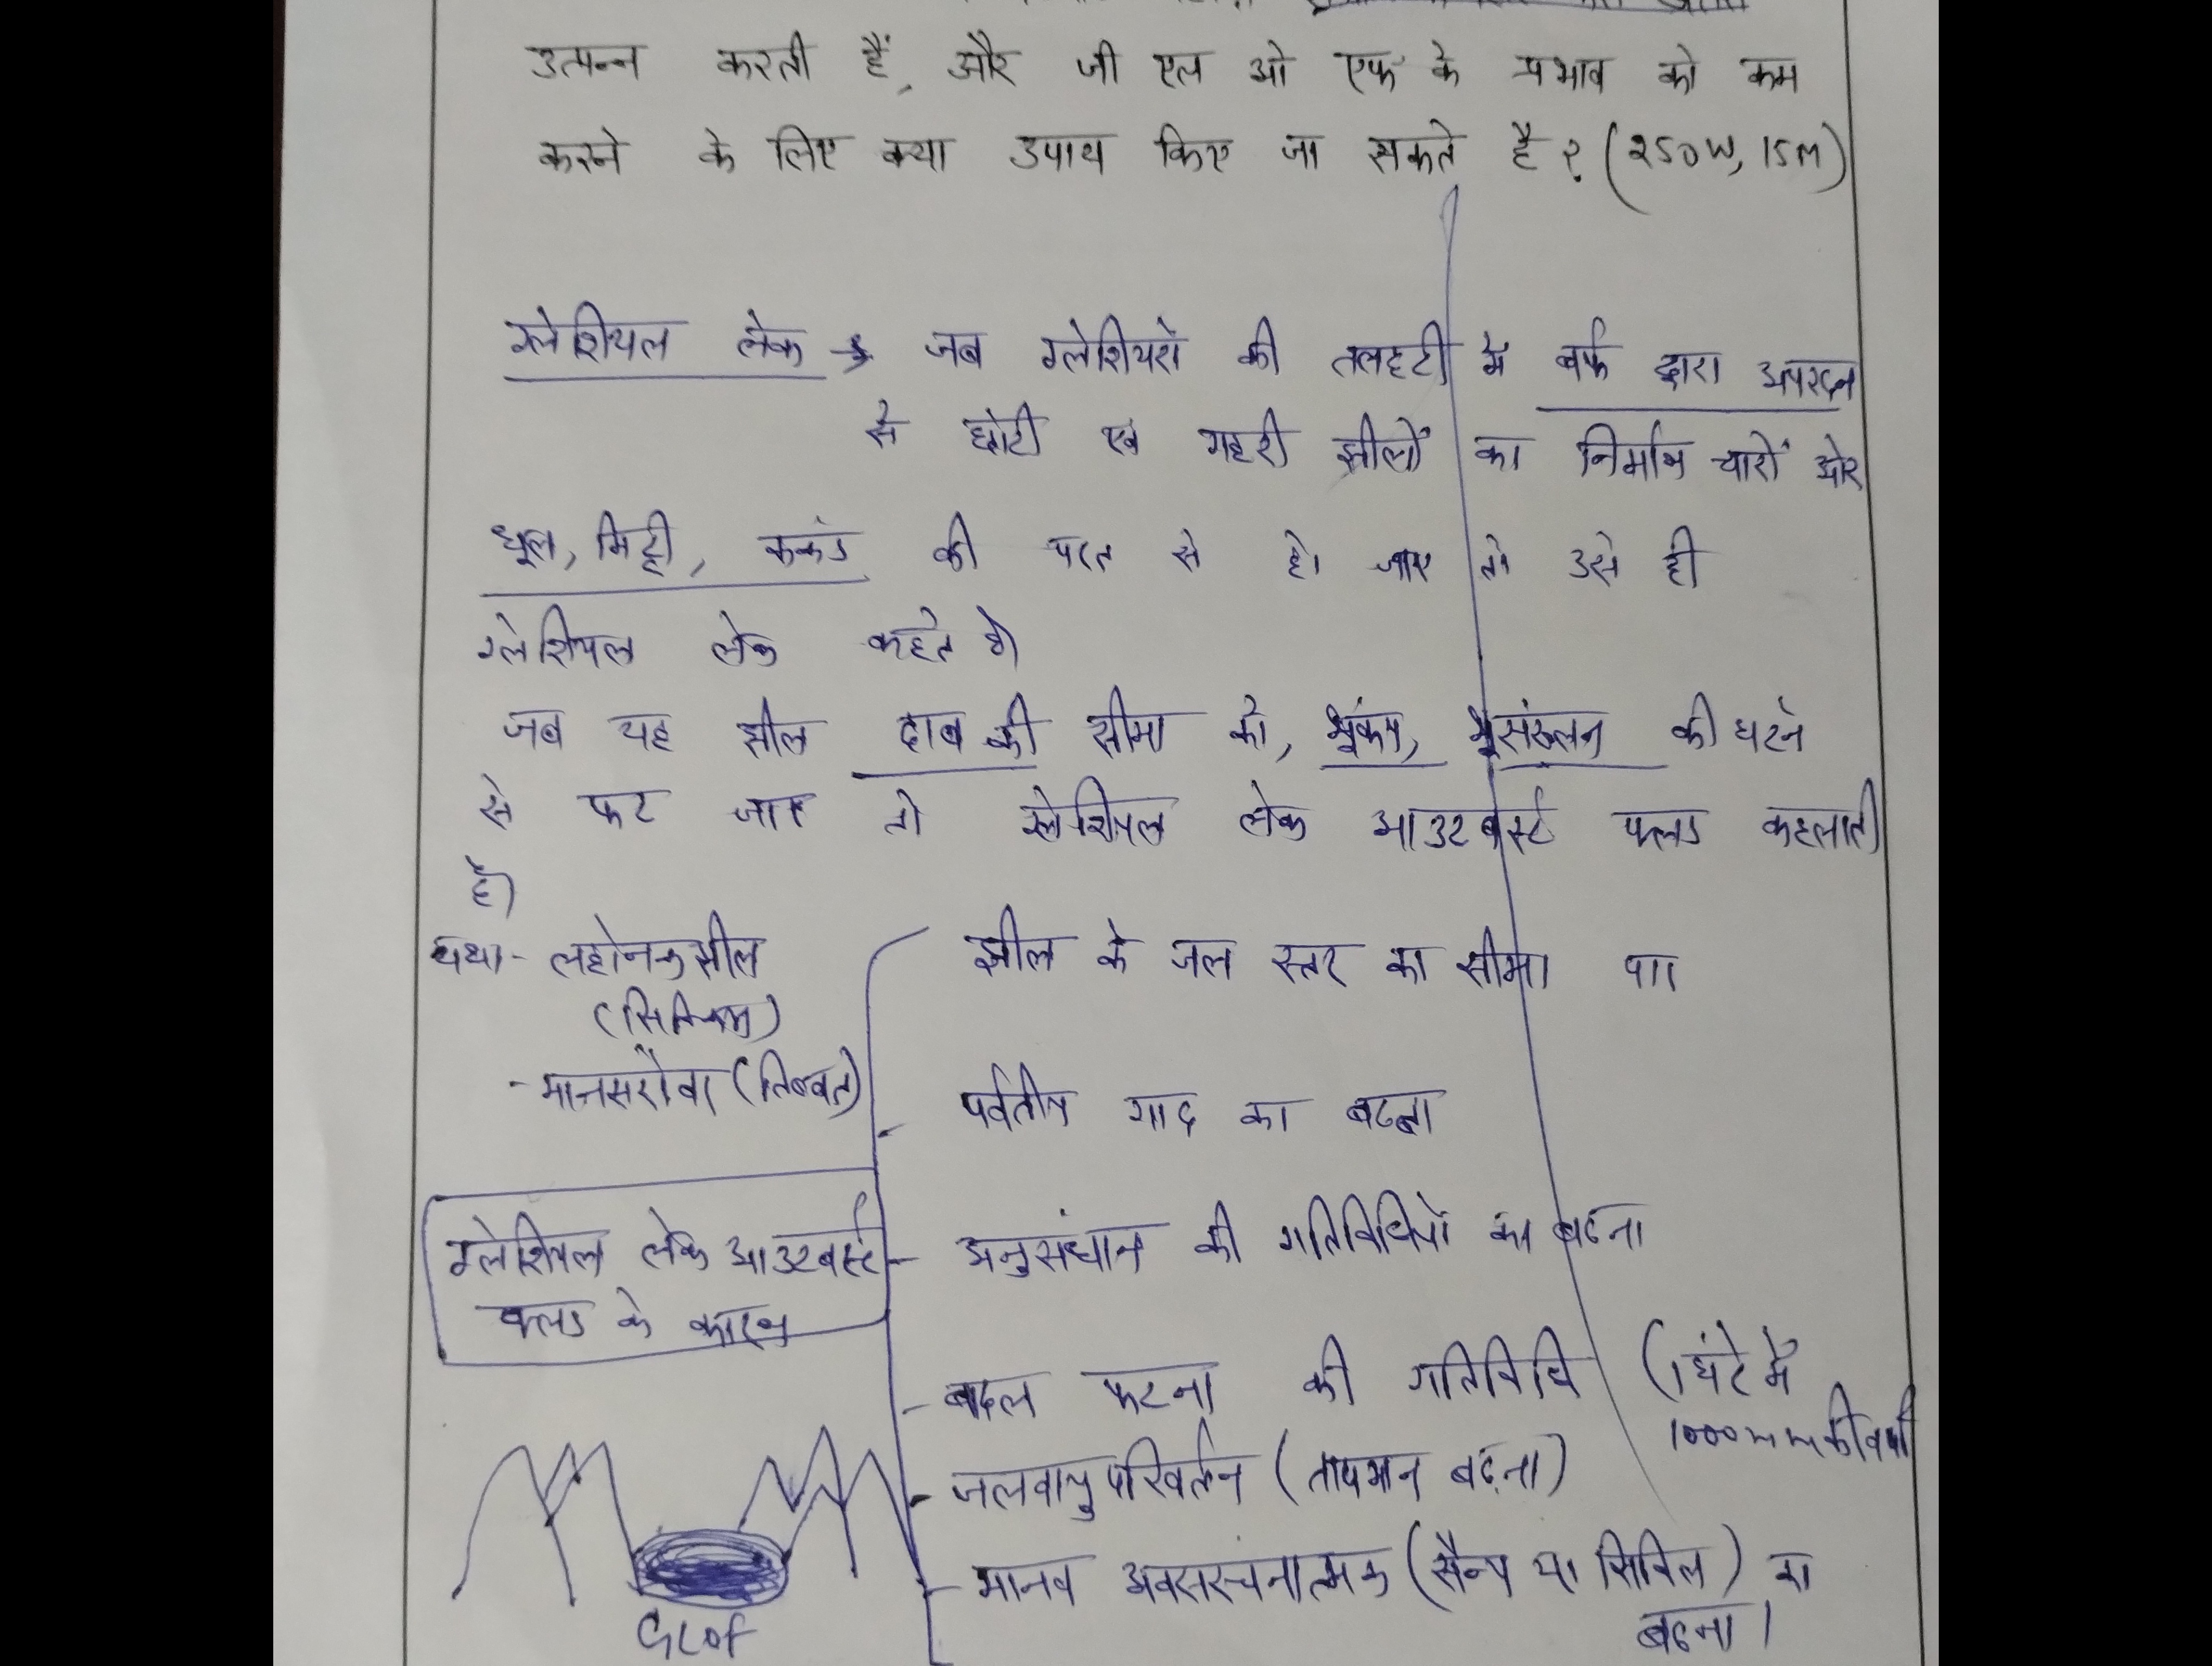 उत्पन्न करती हैं, और जी एल ओ एफ के प्रभाव को कम
करने के लिए क्या उपाय किए जा सकते है? (250W, 15M)
ग्लेशियल लेक → जब ग्लेशियरों की तलहटी में बर्फ द्वारा अपरदन
से छोटी एवं गहरी झीलों का निर्माण चारों ओर
धूल, मिट्टी, ककंड की परत से हो जाए तो उसे ही
ग्लेशियल लेक कहते है।
जब यह झील दाब की सीमा को, भूकंप, भूसंख्लन की घटने
से फट जाए तो ग्लेशियल लेक आउटबर्स्ट फ्लड कहलाती
है।
यथा - लहोनक झील
(सिक्किम)
- मानसरोवर (तिब्बत)
झील के जल स्तर का सीमा पार
पर्वतीय गाद का बढना
ग्लेशियल लेक आउटबर्स्ट
फ्लड के कारण
- अनुसंधान की गतिविधियों का बढना
- बादल फटना की गतिविधि (1 घंटे में
1000mm की वर्षा
- जलवायु परिवर्तन (तापमान बढ़ना)
- मानव अवसरंचनात्मक (सैन्य या सिविल) का
बढना।
GLOF